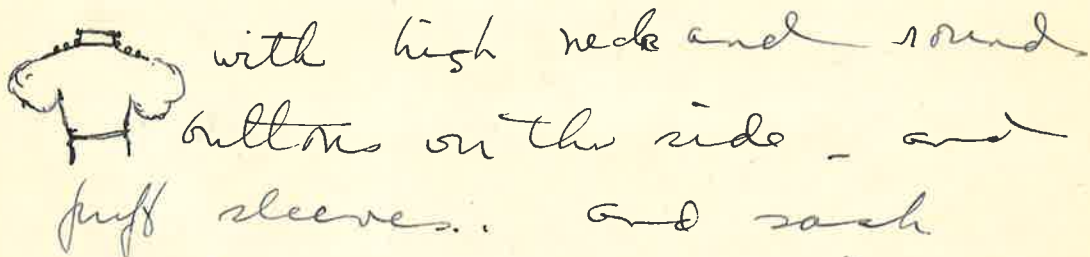 with high neck and round
buttons on the side - and
puff sleeves.. and sash